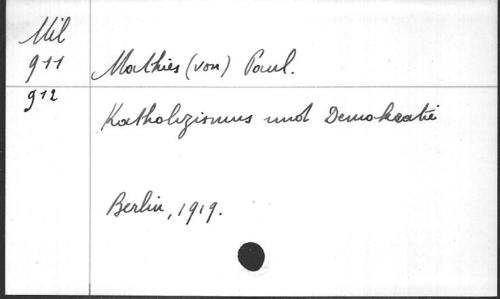 Mil
911
Mathies (von) Paul.
912
Katholizismus und Demokratie
Berlin, 1919.